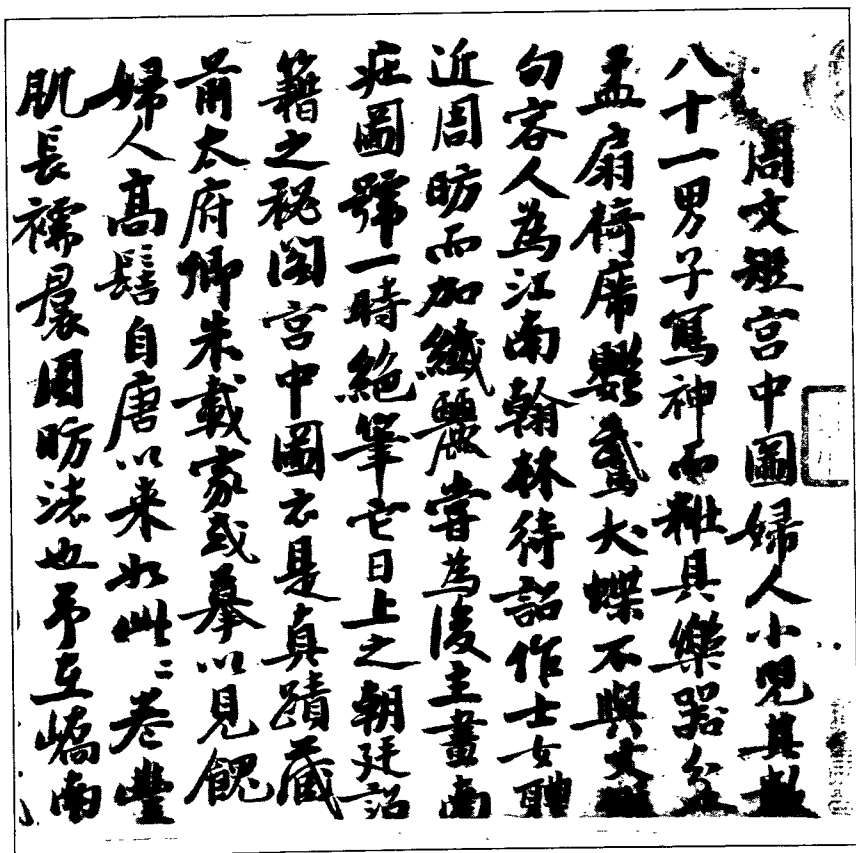 周文矩宮中圖婦人小兒其數
八十一男子寫神而粧具樂器盆
盂扇椅席鸚鵡犬蝶不與文矩
句容人為江南翰林待詔作士女體
近周昉而加纖麗嘗為後主畫南
莊圖號一時絕筆它日上之朝廷詔
籍之秘閣宮中圖云是真蹟藏
前太府卿朱載家或摹以見餽
婦人高髻自唐以來如此〻卷豐
肌長襦裠周昉法也予在嶠南